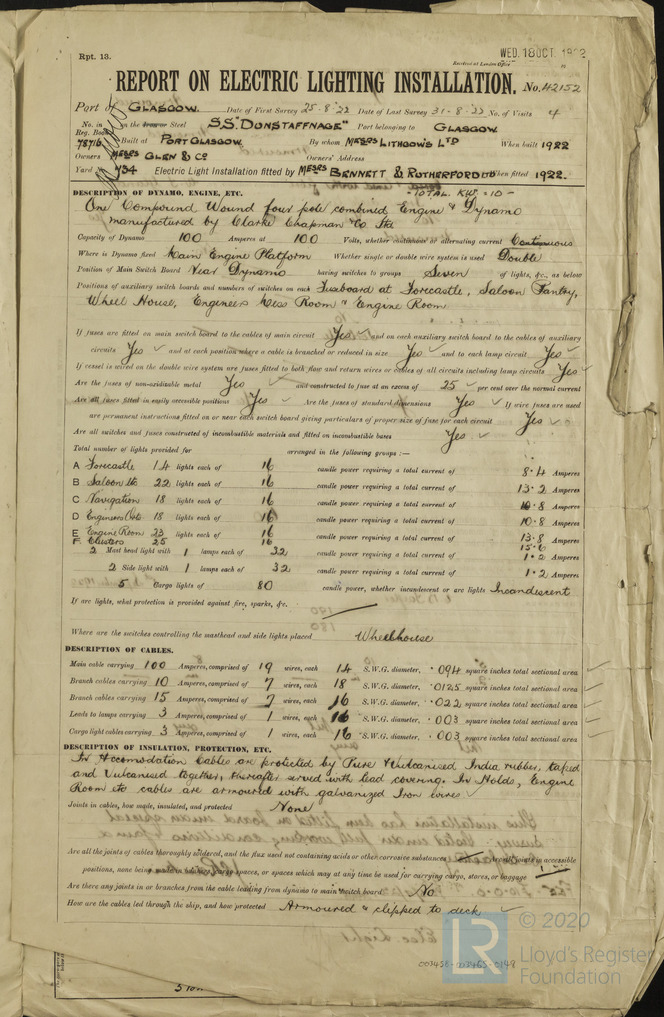 Rpt. 13.
WED. 18 OCT. 1922
Received at London Office
REPORT ON ELECTRIC LIGHTING INSTALLATION. No. 42152
Port of GLASGOW. Date of First Survey 25-8-22 Date of Last Survey 31-8-22 No. of Visits 4
No. in Reg. Book 78716 on the Iron or Steel S.S. "DUNSTAFFNAGE" Port belonging to GLASGOW
Built at PORT GLASGOW. By whom MESSRS LITHGOWS LTD When built 1922
Owners MESSRS GLEN & CO Owners' Address
Yard No. 734 Electric Light Installation fitted by MESSRS BENNETT & RUTHERFORD LTD When fitted 1922.
-TOTAL KW = 10-
DESCRIPTION OF DYNAMO, ENGINE, ETC.
One Compound Wound four pole combined Engine & Dynamo
manufactured by Clarke Chapman & Co Ltd
Capacity of Dynamo 100 Amperes at 100 Volts, whether continuous or alternating current Continuous
Where is Dynamo fixed Main Engine Platform Whether single or double wire system is used Double
Position of Main Switch Board Near Dynamo having switches to groups Seven of lights, &c., as below
Positions of auxiliary switch boards and numbers of switches on each Fuseboard at Forecastle, Saloon Pantry,
Wheel House, Engineers Mess Room & Engine Room
If fuses are fitted on main switch board to the cables of main circuit Yes and on each auxiliary switch board to the cables of auxiliary
circuits Yes and at each position where a cable is branched or reduced in size Yes and to each lamp circuit Yes
If vessel is wired on the double wire system are fuses fitted to both flow and return wires or cables of all circuits including lamp circuits Yes
Are the fuses of non-oxidizable metal Yes and constructed to fuse at an excess of 25 per cent over the normal current
Are all fuses fitted in easily accessible positions Yes Are the fuses of standard dimensions Yes If wire fuses are used
are permanent instructions fitted on or near each switch board giving particulars of proper size of fuse for each circuit Yes
Are all switches and fuses constructed of incombustible materials and fitted on incombustible bases Yes
Total number of lights provided for arranged in the following groups :—
A Forecastle 14 lights each of 16 candle power requiring a total current of 8.4 Amperes
B Saloon &c 22 lights each of 16 candle power requiring a total current of 13.2 Amperes
C Navigation 18 lights each of 16 candle power requiring a total current of 10.8 Amperes
D Engineers Qrts 18 lights each of 16 candle power requiring a total current of 10.8 Amperes
E Engine Room 23 lights each of 16 candle power requiring a total current of 13.8 Amperes
F. Clusters 25 16 15.6
2 Mast head light with 1 lamps each of 32 candle power requiring a total current of 1.2 Amperes
2 Side light with 1 lamps each of 32 candle power requiring a total current of 1.2 Amperes
5 Cargo lights of 80 candle power, whether incandescent or arc lights Incandescent
If arc lights, what protection is provided against fire, sparks, &c.
Where are the switches controlling the masthead and side lights placed Wheelhouse
DESCRIPTION OF CABLES.
Main cable carrying 100 Amperes, comprised of 19 wires, each 14 S.W.G. diameter, .094 square inches total sectional area
Branch cables carrying 10 Amperes, comprised of 7 wires, each 18 S.W.G. diameter, .0125 square inches total sectional area
Branch cables carrying 15 Amperes, comprised of 7 wires, each 16 S.W.G. diameter, .022 square inches total sectional area
Leads to lamps carrying 3 Amperes, comprised of 1 wires, each 16 S.W.G. diameter, .003 square inches total sectional area
Cargo light cables carrying 3 Amperes, comprised of 1 wires, each 16 S.W.G. diameter, .003 square inches total sectional area
DESCRIPTION OF INSULATION, PROTECTION, ETC.
In Accomodation Cables are protected by Pure & Vulcanised India rubber, taped
and Vulcanised together, thereafter served with lead covering. In Holds, Engine
Room etc cables are armoured with galvanized Iron wires
Joints in cables, how made, insulated, and protected None
Are all the joints of cables thoroughly soldered, and the flux used not containing acids or other corrosive substances Are all joints in accessible
positions, none being made in cargo spaces, or spaces which may at any time be used for carrying cargo, stores, or baggage
Are there any joints in or branches from the cable leading from dynamo to main switch board No.
How are the cables led through the ship, and how protected Armoured & clipped to deck
003458-003465-0148
© 2020
LR
Lloyd's Register
Foundation